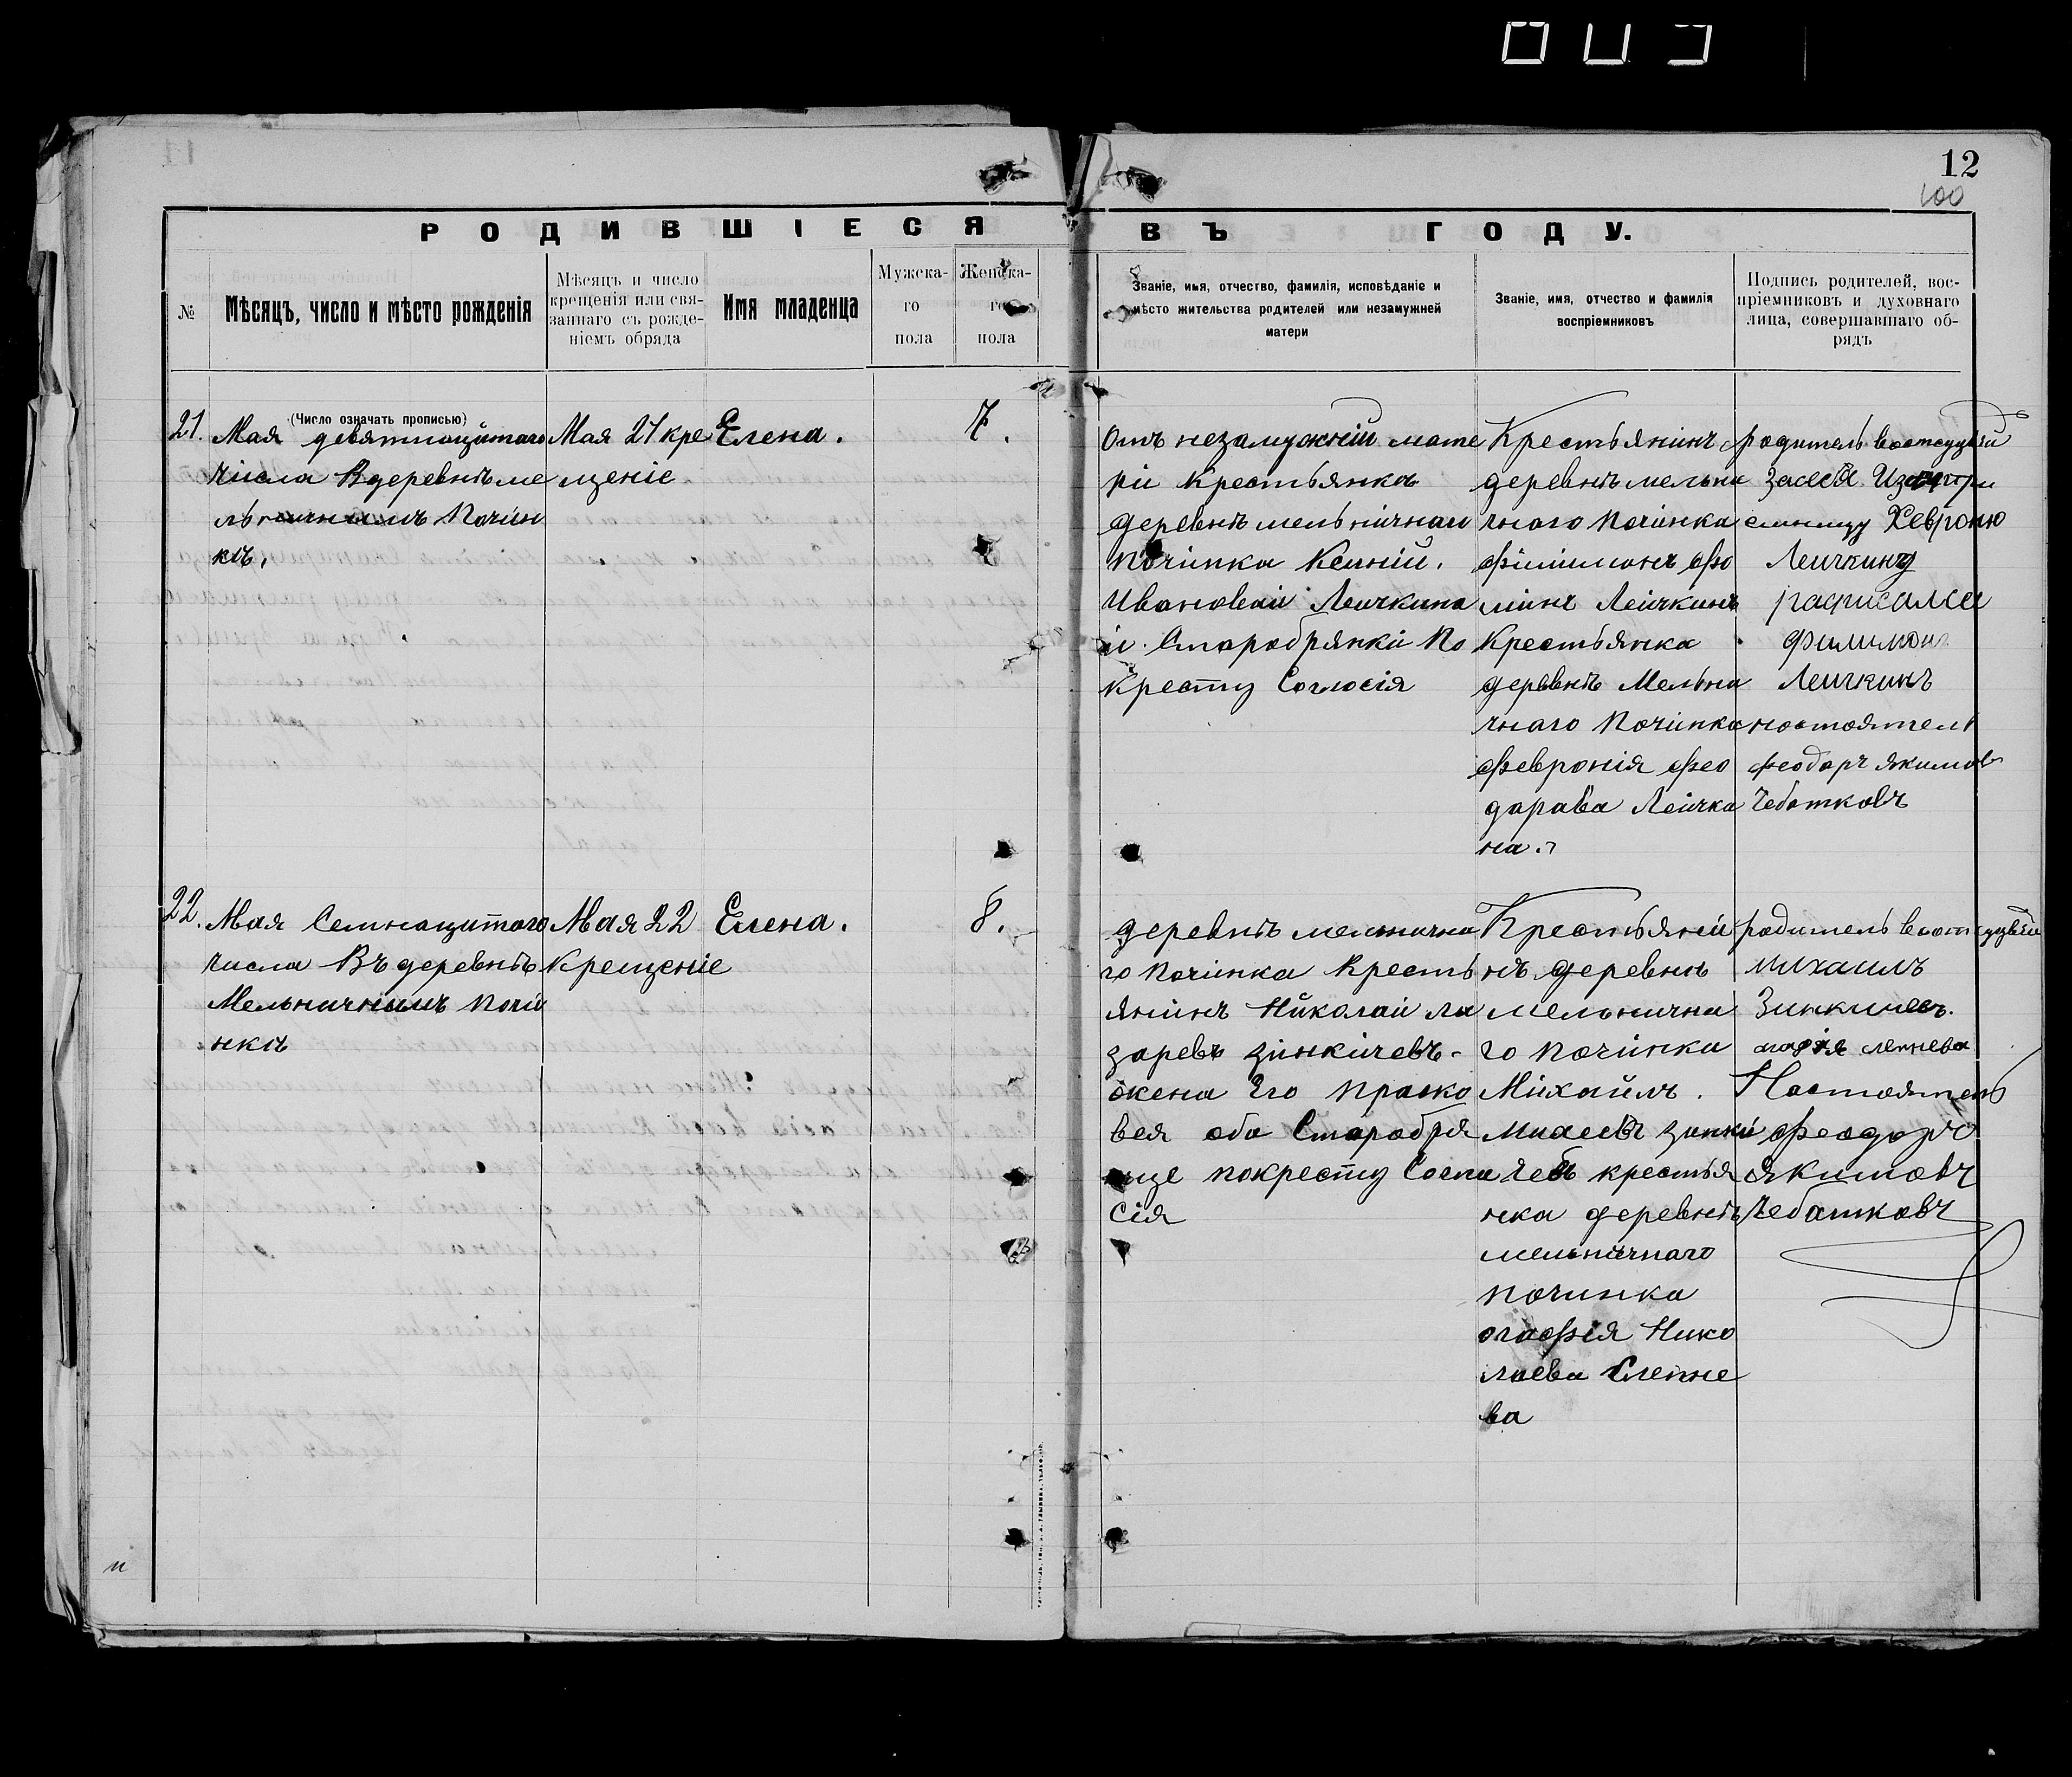 12
100
РОДИВШІЕСЯ ВЪ ГОДУ.
№
Мѣсяцъ, число и мѣсто рожденія
Мѣсяцъ и число
крещенія или свя-
заннаго съ рожде-
ніемъ обряда
Имя младенца
Мужска-
го
пола
Женска-
го
пола
Званіе, имя, отчество, фамилія, исповѣданіе и
мѣсто жительства родителей или незамужней
матери
Званіе, имя, отчество и фамилія
воспріемниковъ
Подпись родителей, вос-
пріемниковъ и духовнаго
лица, совершавшаго об-
рядъ
(Число означать прописью)
21.
Мая девятнацйтаго
числа Вдеревнѣ ме
льничнымъ Почин
кѣ.
Мая 21 кре
щеніе
Елена.
7.
Отъ незамужній мате
ріи Крестьянка
деревнѣ мельничнаго
Починка
Ивановай Леичкина
й. Старобрянкі По
Кресту Согласія
Крестьянинъ
деревнѣ мельни
чнаго Починка
Филимонъ Фо
минъ Леичкинъ
Крестьянка
деревнѣ Мельни
чнаго Починка
Февронія Фео
дарава Леички
на.
родитель
Леичкину
расписался
Филимонъ
Леичкинъ
настоятель
Феодаръ Якимовъ
Чебатковъ
22.
Мая Семнацитаго
числа Въ деревнѣ
Мельничнымъ Почи
нкѣ
Мая 22
Крещеніе
Елена.
8.
деревнѣ мельнична
го Починка Кресть
янинъ Николай ла
заревъ зінкичевъ-
жена Его праско
вея оба Старобря
нце покресту Согла
сія
Крестьяни
нъ деревнѣ
мельнична
го Починка
Михайлъ.
Михеевъ зинки
чевъ крестья
нка деревнѣ
мельничнаго
Починка
огафія Нико
лаева Слепне
ва
родитель
михаилъ
Зинкичевъ.
Настоятель
Феодоръ
Якимовъ
Чебатковъ